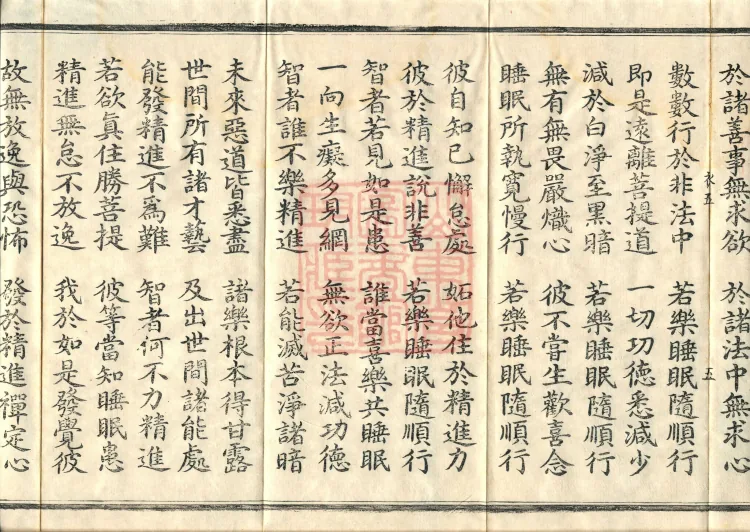 於諸善事無求欲　於諸法中無求心
數數行於非法中　若樂睡眠隨順行
即是遠離菩提道　一切功德悉減少
減於白淨至黑暗　若樂睡眠隨順行
無有無畏嚴熾心　彼不嘗生歡喜念
睡眠所執寬慢行　若樂睡眠隨順行
彼自知已懈怠處　妬他住於精進力
彼於精進說非善　若樂睡眠隨順行
智者若見如是患　誰當喜樂共睡眠
一向生癡多見網　無欲正法減功德
智者誰不樂精進　若能滅苦淨諸暗
未來惡道皆悉盡　諸樂根本得甘露
世間所有諸才藝　及出世間諸能處
能發精進不為難　智者何不力精進
若欲真住勝菩提　彼等當知睡眠患
精進無怠不放逸　我於如是發覺彼
故無放逸與恐怖　發於精進禪定心
衣五
五